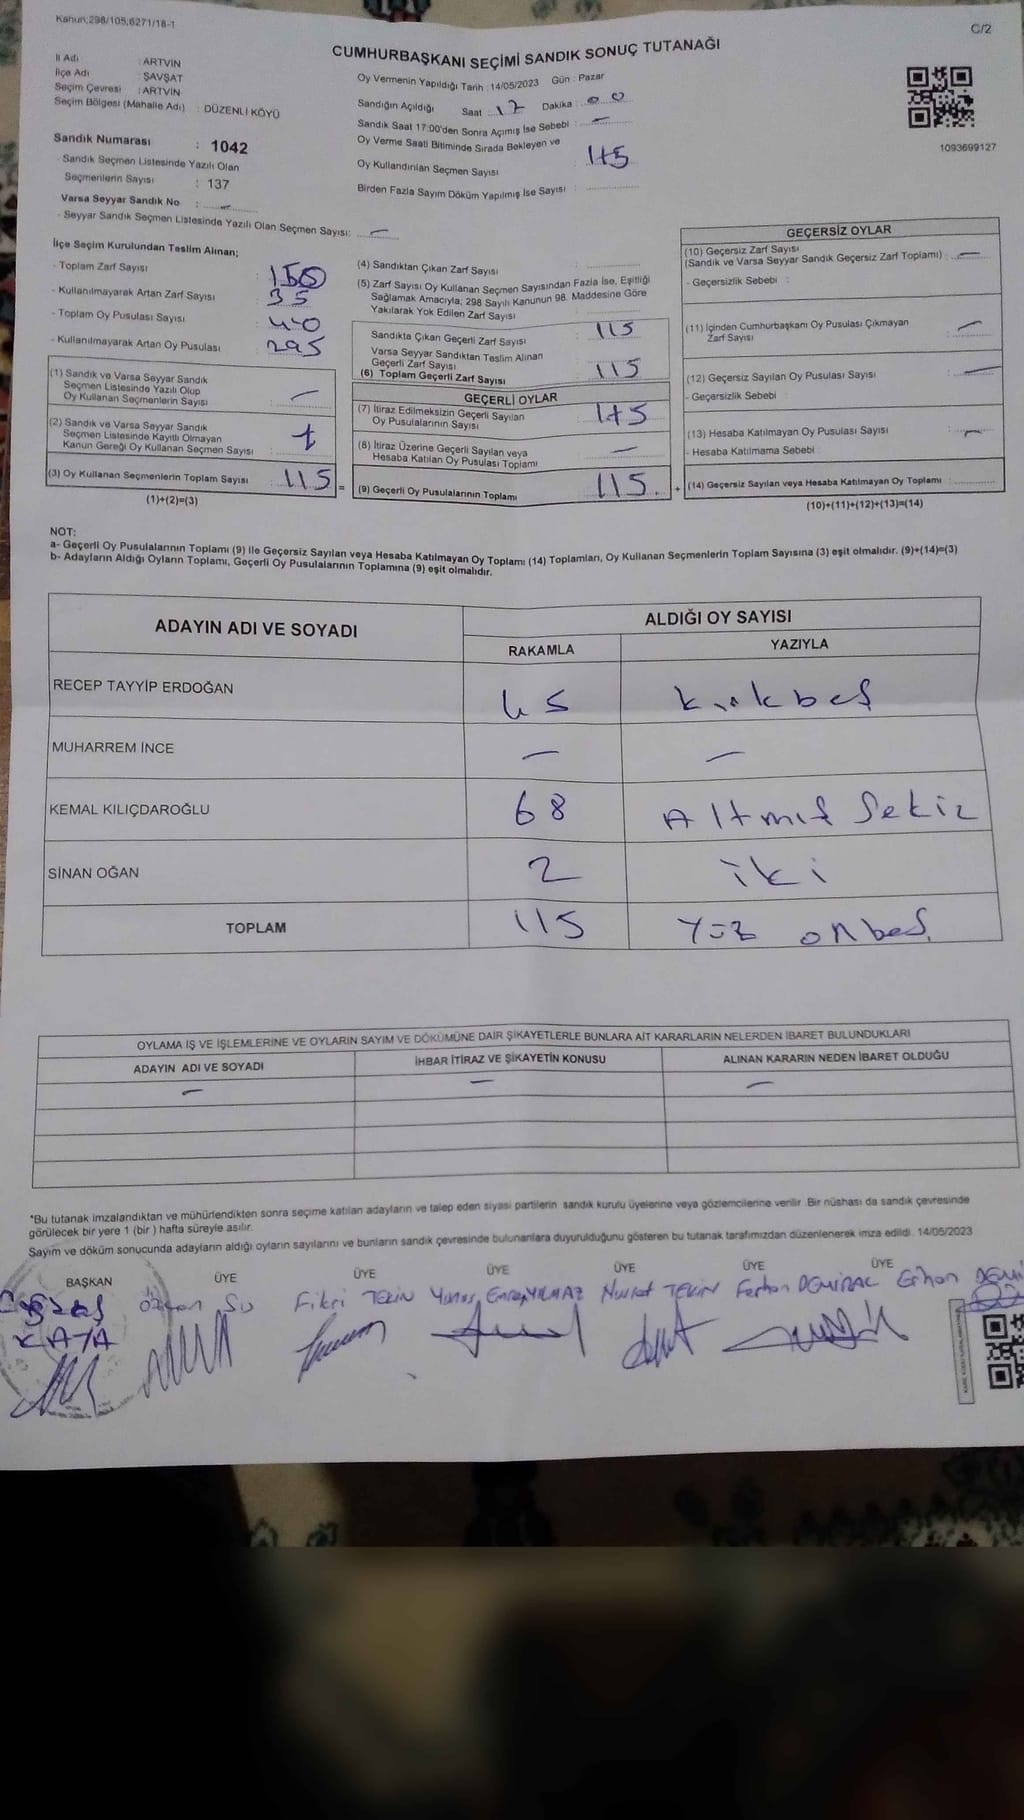 Kanun;298/105;6271/18-1
C/2
CUMHURBAŞKANI SEÇİMİ SANDIK SONUÇ TUTANAĞI
İl Adı : ARTVİN
İlçe Adı : ŞAVŞAT
Seçim Çevresi : ARTVİN
Seçim Bölgesi (Mahalle Adı) : DÜZENLİ KÖYÜ
Oy Vermenin Yapıldığı Tarih : 14/05/2023 Gün : Pazar
Sandığın Açıldığı Saat 17 Dakika : 00
Sandık Saat 17:00'den Sonra Açımış İse Sebebi : —
Oy Verme Saati Bitiminde Sırada Bekleyen ve
Oy Kullandırılan Seçmen Sayısı : 115
Birden Fazla Sayım Döküm Yapılmış İse Sayısı :
1093699127
Sandık Numarası : 1042
- Sandık Seçmen Listesinde Yazılı Olan
Seçmenlerin Sayısı : 137
Varsa Seyyar Sandık No : —
- Seyyar Sandık Seçmen Listesinde Yazılı Olan Seçmen Sayısı: —
İlçe Seçim Kurulundan Teslim Alınan;
- Toplam Zarf Sayısı : 150
- Kullanılmayarak Artan Zarf Sayısı : 35
- Toplam Oy Pusulası Sayısı :
- Kullanılmayarak Artan Oy Pusulası : 295
(1) Sandık ve Varsa Seyyar Sandık
Seçmen Listesinde Yazılı Olup
Oy Kullanan Seçmenlerin Sayısı : —
(2) Sandık ve Varsa Seyyar Sandık
Seçmen Listesinde Kayıtlı Olmayan
Kanun Gereği Oy Kullanan Seçmen Sayısı : 1
(3) Oy Kullanan Seçmenlerin Toplam Sayısı : 115
(1)+(2)=(3)
(4) Sandıktan Çıkan Zarf Sayısı :
(5) Zarf Sayısı Oy Kullanan Seçmen Sayısından Fazla İse, Eşitliği
Sağlamak Amacıyla; 298 Sayılı Kanunun 98. Maddesine Göre
Yakılarak Yok Edilen Zarf Sayısı :
Sandıkta Çıkan Geçerli Zarf Sayısı : 115
Varsa Seyyar Sandıktan Teslim Alınan
Geçerli Zarf Sayısı
(6) Toplam Geçerli Zarf Sayısı : 115
GEÇERLİ OYLAR
(7) İtiraz Edilmeksizin Geçerli Sayılan
Oy Pusulalarının Sayısı : 115
(8) İtiraz Üzerine Geçerli Sayılan veya
Hesaba Katılan Oy Pusulası Toplamı : —
= (9) Geçerli Oy Pusulalarının Toplamı : 115
GEÇERSİZ OYLAR
(10) Geçersiz Zarf Sayısı
(Sandık ve Varsa Seyyar Sandık Geçersiz Zarf Toplamı) : —
- Geçersizlik Sebebi :
(11) İçinden Cumhurbaşkanı Oy Pusulası Çıkmayan
Zarf Sayısı : —
(12) Geçersiz Sayılan Oy Pusulası Sayısı : —
- Geçersizlik Sebebi :
(13) Hesaba Katılmayan Oy Pusulası Sayısı : —
- Hesaba Katılmama Sebebi :
+ (14) Geçersiz Sayılan veya Hesaba Katılmayan Oy Toplamı :
(10)+(11)+(12)+(13)=(14)
NOT:
a- Geçerli Oy Pusulalarının Toplamı (9) ile Geçersiz Sayılan veya Hesaba Katılmayan Oy Toplamı (14) Toplamları, Oy Kullanan Seçmenlerin Toplam Sayısına (3) eşit olmalıdır. (9)+(14)=(3)
b- Adayların Aldığı Oyların Toplamı, Geçerli Oy Pusulalarının Toplamına (9) eşit olmalıdır.
ADAYIN ADI VE SOYADI ALDIĞI OY SAYISI
RAKAMLA YAZIYLA
RECEP TAYYİP ERDOĞAN 45 kırkbeş
MUHARREM İNCE — —
KEMAL KILIÇDAROĞLU 68 Altmış Sekiz
SİNAN OĞAN 2 iki
TOPLAM 115 Yüz onbeş
OYLAMA İŞ VE İŞLEMLERİNE VE OYLARIN SAYIM VE DÖKÜMÜNE DAİR ŞİKAYETLERLE BUNLARA AİT KARARLARIN NELERDEN İBARET BULUNDUKLARI
ADAYIN ADI VE SOYADI İHBAR İTİRAZ VE ŞİKAYETİN KONUSU ALINAN KARARIN NEDEN İBARET OLDUĞU
— — —
*Bu tutanak imzalandıktan ve mühürlendikten sonra seçime katılan adayların ve talep eden siyasi partilerin sandık kurulu üyelerine veya gözlemcilerine verilir. Bir nüshası da sandık çevresinde
görülecek bir yere 1 (bir ) hafta süreyle asılır.
Sayım ve döküm sonucunda adayların aldığı oyların sayılarını ve bunların sandık çevresinde bulunanlara duyurulduğunu gösteren bu tutanak tarafımızdan düzenlenerek imza edildi. 14/05/2023
BAŞKAN ÜYE ÜYE ÜYE ÜYE ÜYE ÜYE
Özcan Su Fikri TEKİN Yunus Emre YILMAZ Murat TEKİN Ferhan DEMİRAL Erhan
KAYA